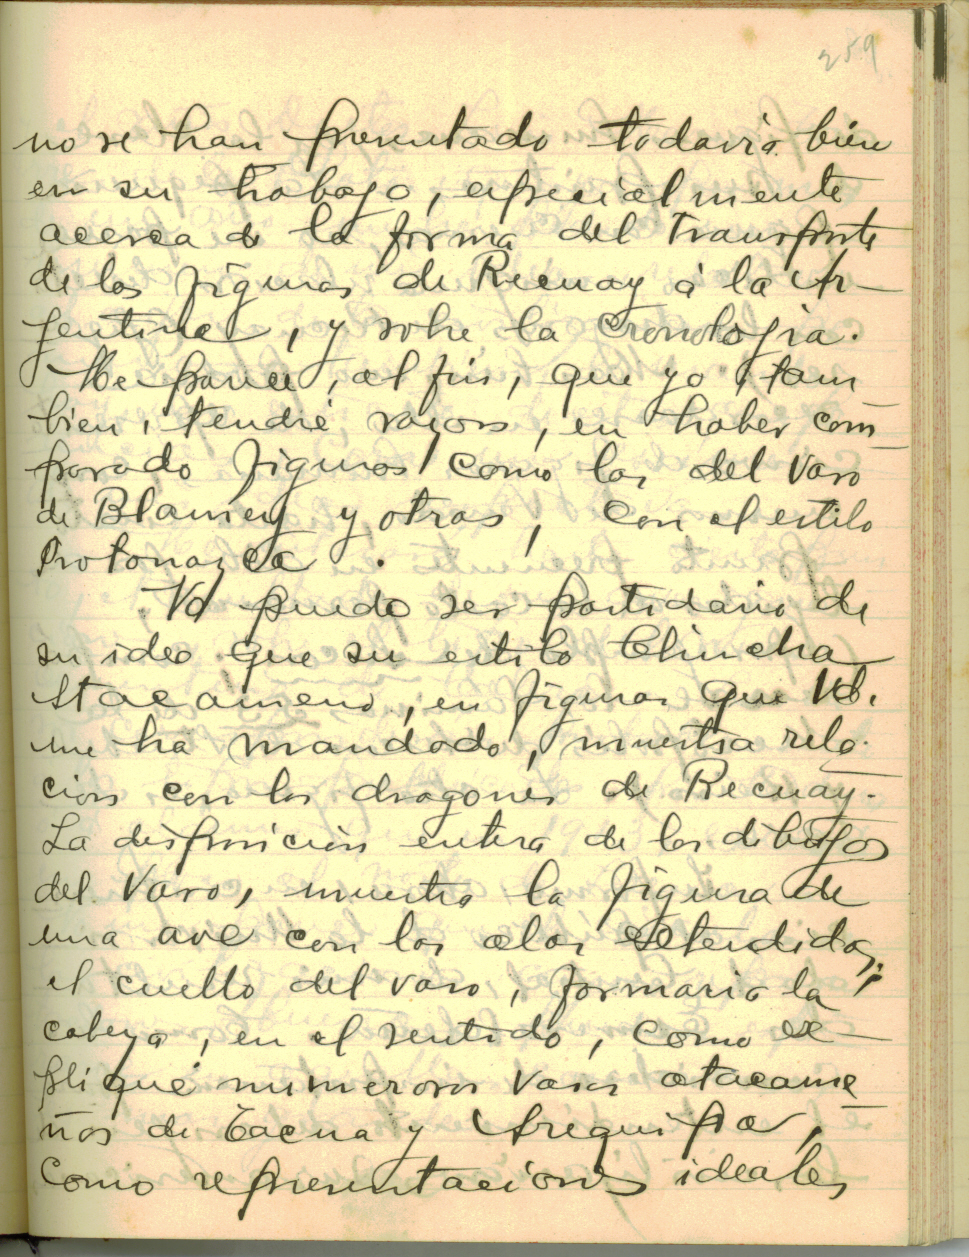 259
no se han presentado todavia bien
en su trabajo, especialmente
acerca de la forma del transporte
de las figuras de Recuay á la Ar-
gentina, y sobre la cronologia.
Me parece, al fin, que yo tam
bien, tendré razon, en haber com-
parado figuras como las del vaso
de Blamey y otras, con el estilo
Protonazca.
Vd puede ser partidario de
su idea que su estilo Chincha
Atacameno, en figuras que Vd.
me ha mandado, muestra rela-
cion con los dragones de Recuay.
La disposicion entera de los dibujos
del vaso, muestra la figura de
una ave con las alas extendidas;
el cuello del vaso, formaria la
cabeza, en el sentido, como ex-
pliqué numerosos vasos atacame
ños de Tacna y Arequipa,
como representaciones ideales